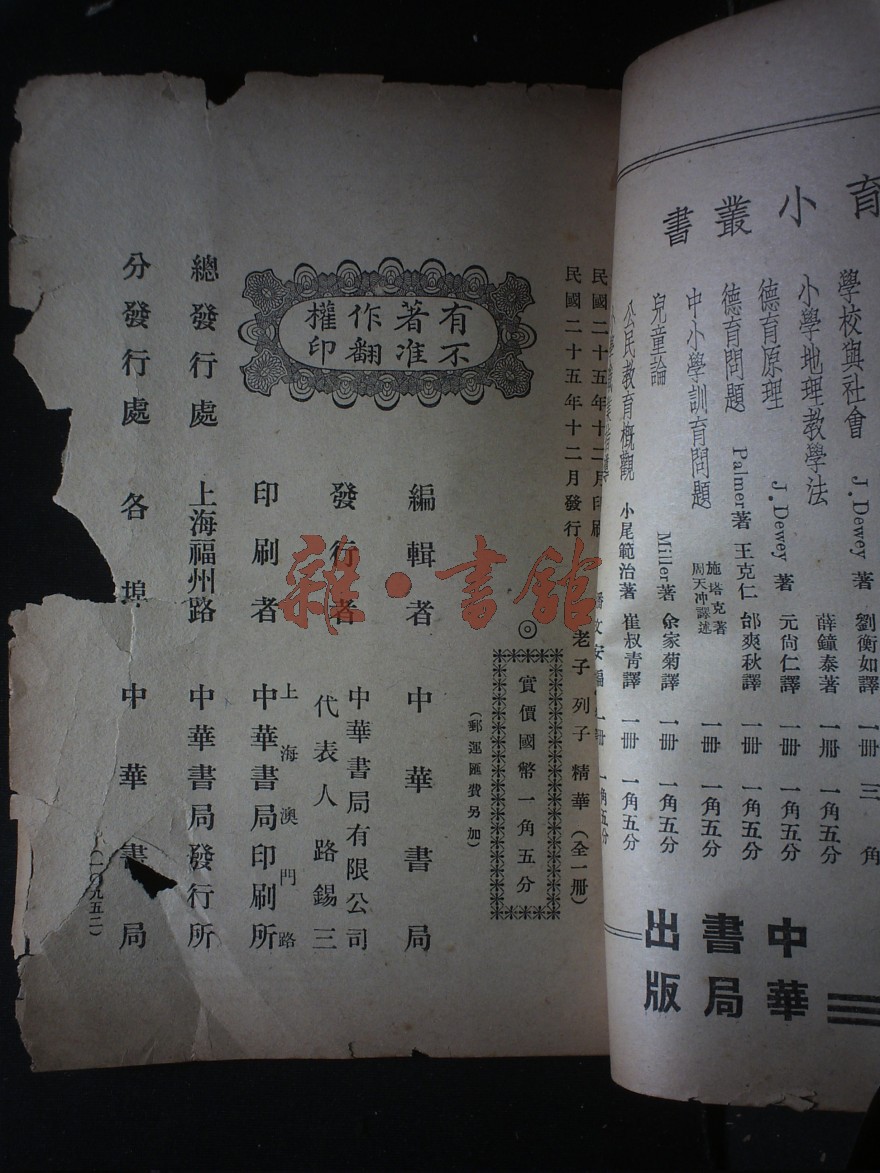 育小叢書
學校與社會 J. Dewey 著 劉衡如譯 一冊 三角
小學地理教學法 薛鐘泰著 一冊 一角五分
德育原理 J. Dewey 著 元尙仁譯 一冊 一角五分
德育問題 Palmer著 王克仁 邰爽秋譯 一冊 一角五分
中小學訓育問題 施塔克著 周天冲譯述 一冊 一角五分
兒童論 Miller著 余家菊譯 一冊 一角五分
公民教育概觀 小尾範治著 崔叔青譯 一冊 一角五分
潘文安編 一冊 一角五分
中華書局出版
民國二十五年十二月印刷
民國二十五年十二月發行
老子列子精華(全一冊)
◎實價國幣一角五分
(郵運匯費另加)
有著作權
不准翻印
編輯者 中華書局
發行者 中華書局有限公司
代表人路錫三
印刷者 上海澳門路
中華書局印刷所
總發行處 上海福州路 中華書局發行所
分發行處 各埠 中華書局
(一〇九五二)
雜·書館